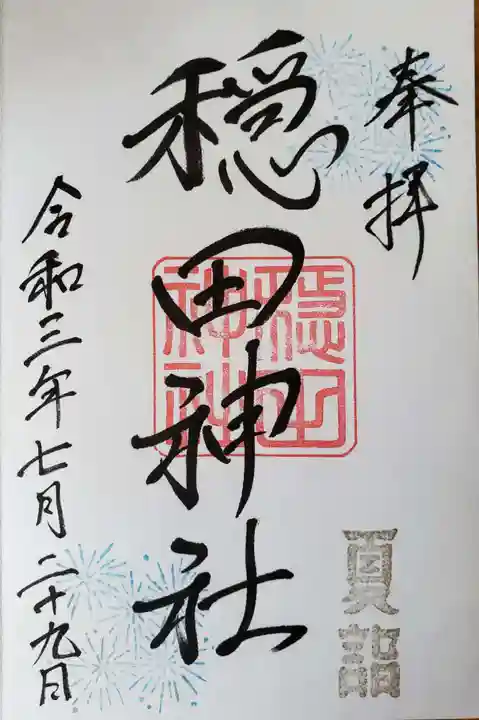 奉拝
穏田神社
穏田
神社
夏詣
令和三年七月二十九日